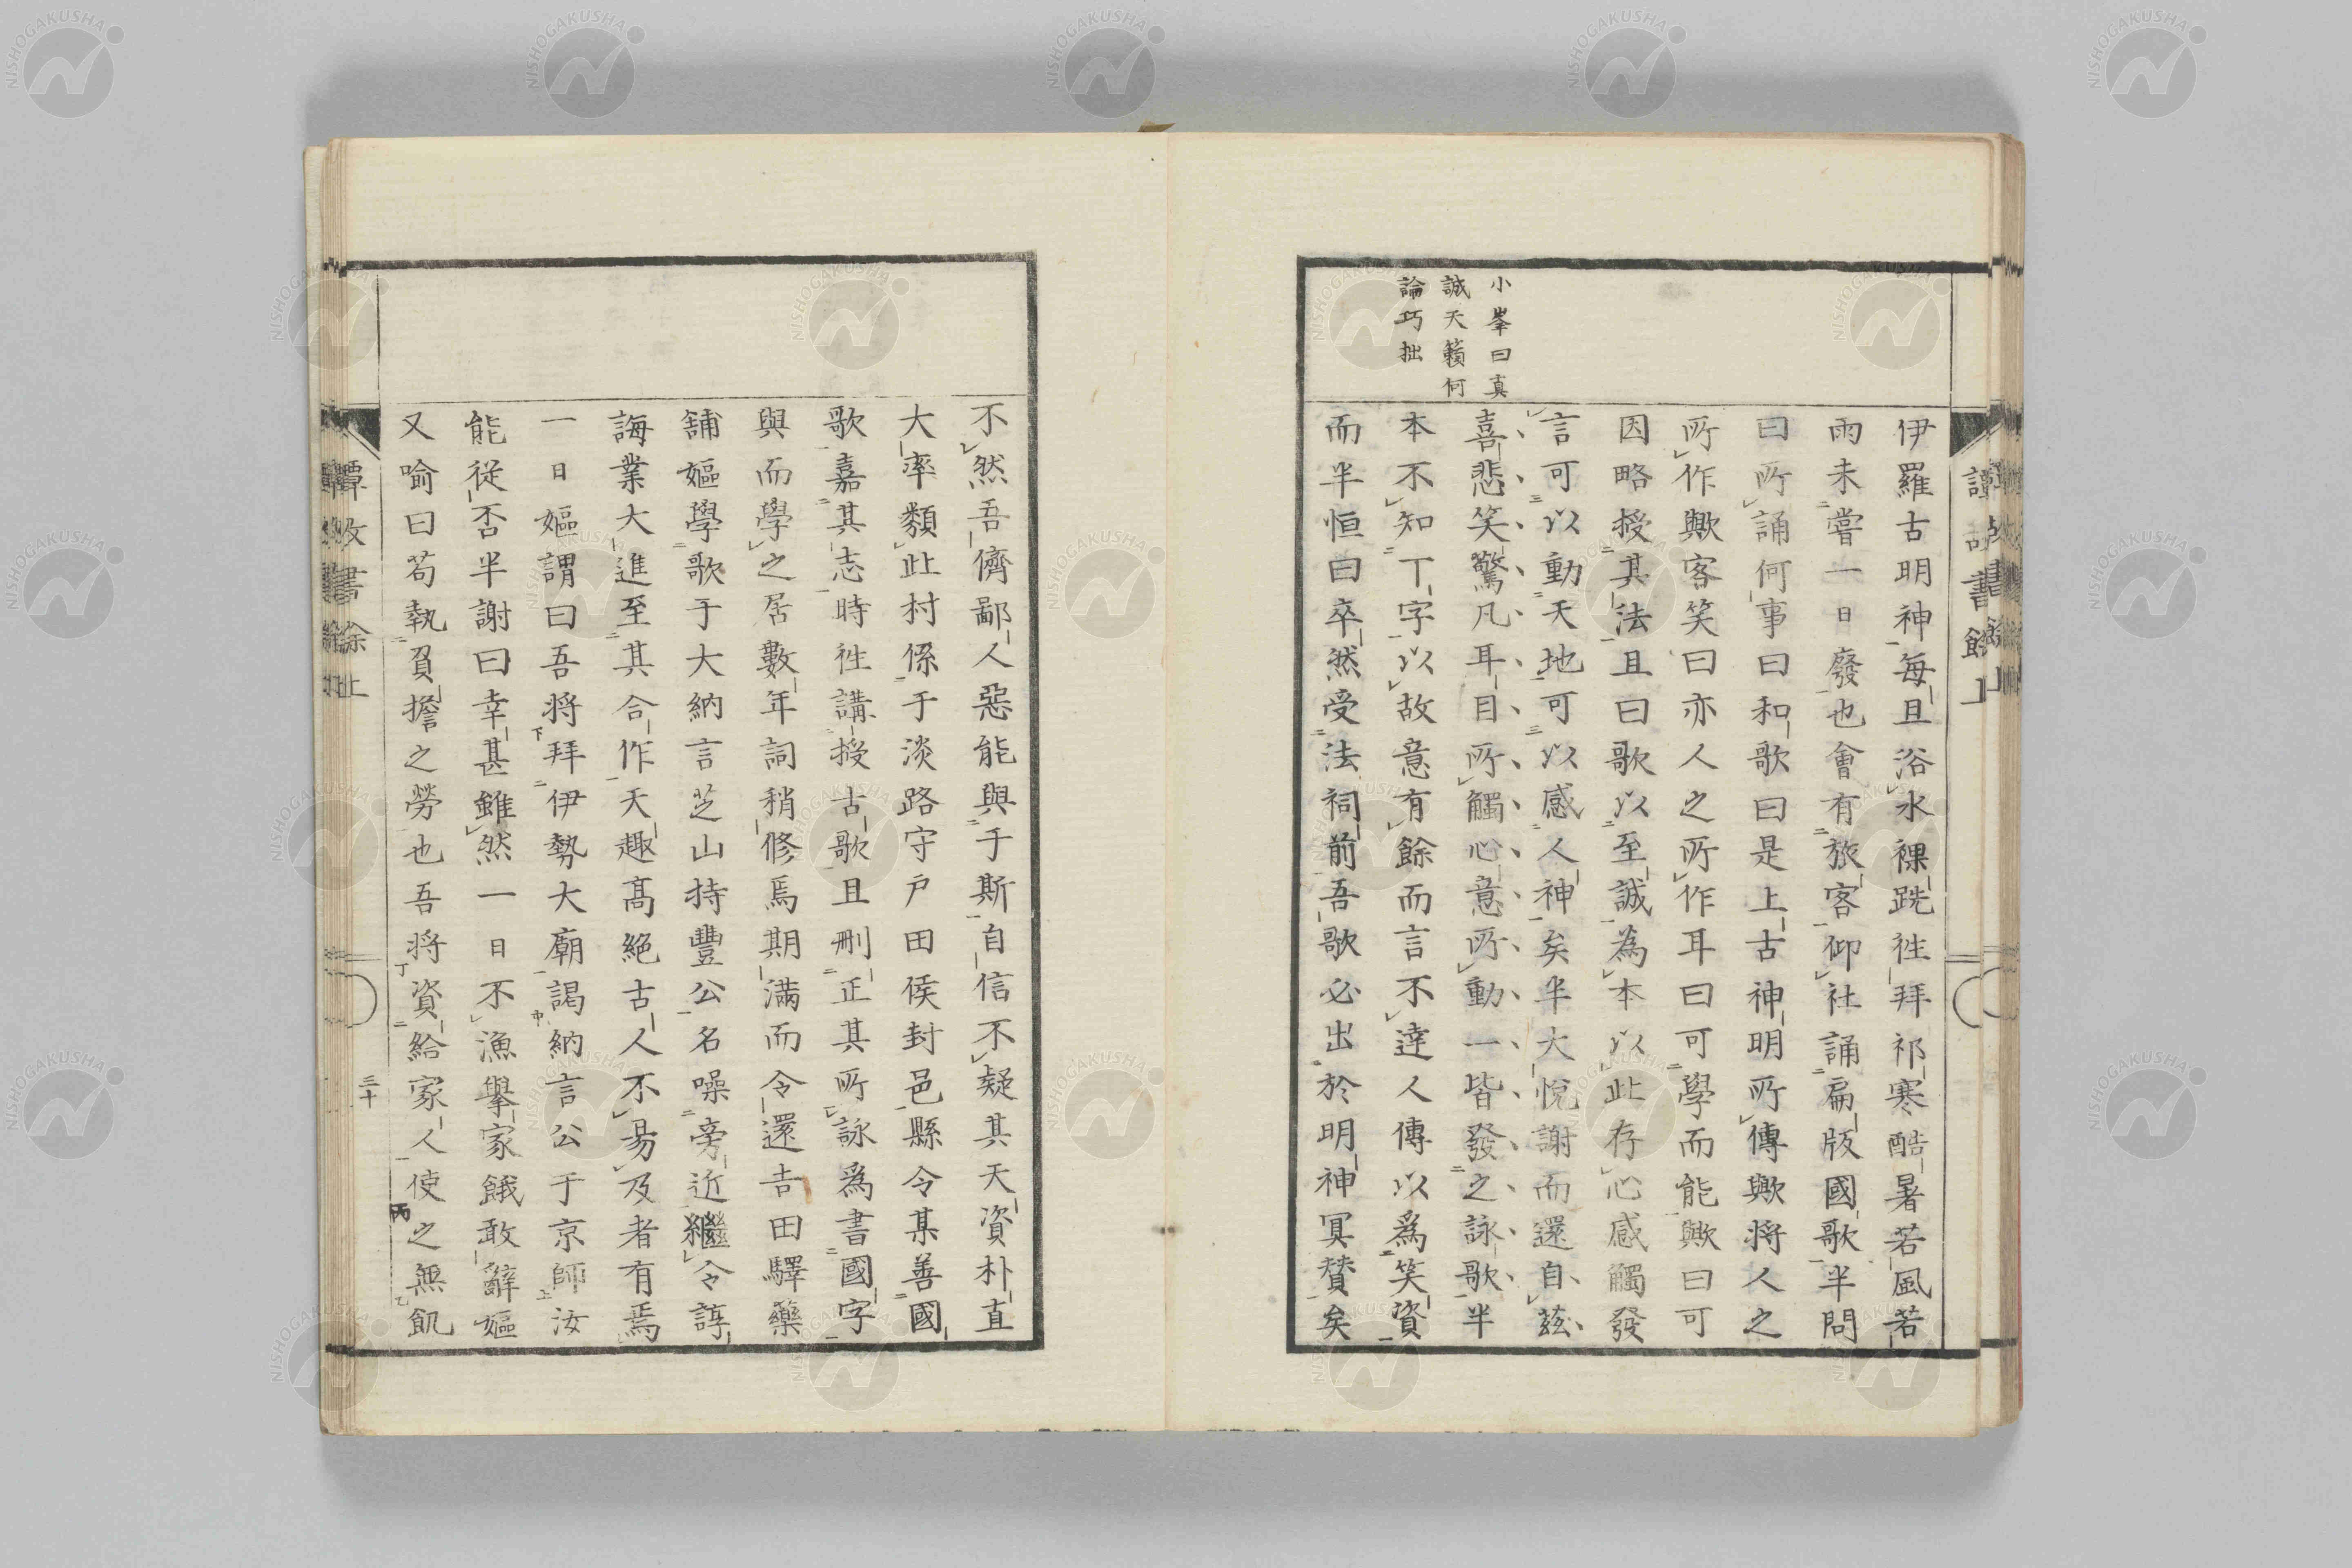 小峯曰真
誠天籟何
論巧拙
伊羅古明神每旦浴水裸跣往拜祁寒酷暑若風若
雨未嘗一日廢也會有旅客仰社誦扁版國歌半問
曰所誦何事曰和歌曰是上古神明所傳歟將人之
所作歟客笑曰亦人之所作耳曰可學而能歟曰可
因略授其法且曰歌以至誠為本以此存心感觸發
言可以動天地可以感人神矣半大悅謝而還自茲
喜悲笑驚凡耳目所觸心意所動一皆發之詠歌半
本不知丁字以故意有餘而言不達人傳以爲笑資
而半恒曰卒然受法祠前吾歌必出於明神冥贊矣
不然吾儕鄙人惡能與于斯自信不疑其天資朴直
大率類此村係于淡路守戶田侯封邑縣令某善國
歌嘉其志時往講授古歌且刪正其所詠爲書國字
與而學之居數年詞稍修焉期滿而令還吉田驛藥
舖嫗學歌于大納言芝山持豐公名噪旁近繼令諄
誨業大進至其合作天趣髙絕古人不易及者有焉
一日嫗謂曰吾將拜伊勢大廟謁納言公于京師汝
能從否半謝曰幸甚雖然一日不漁擧家餓敢辭嫗
又喻曰苟執負擔之勞也吾將資給家人使之無飢
譚故書餘上
三十